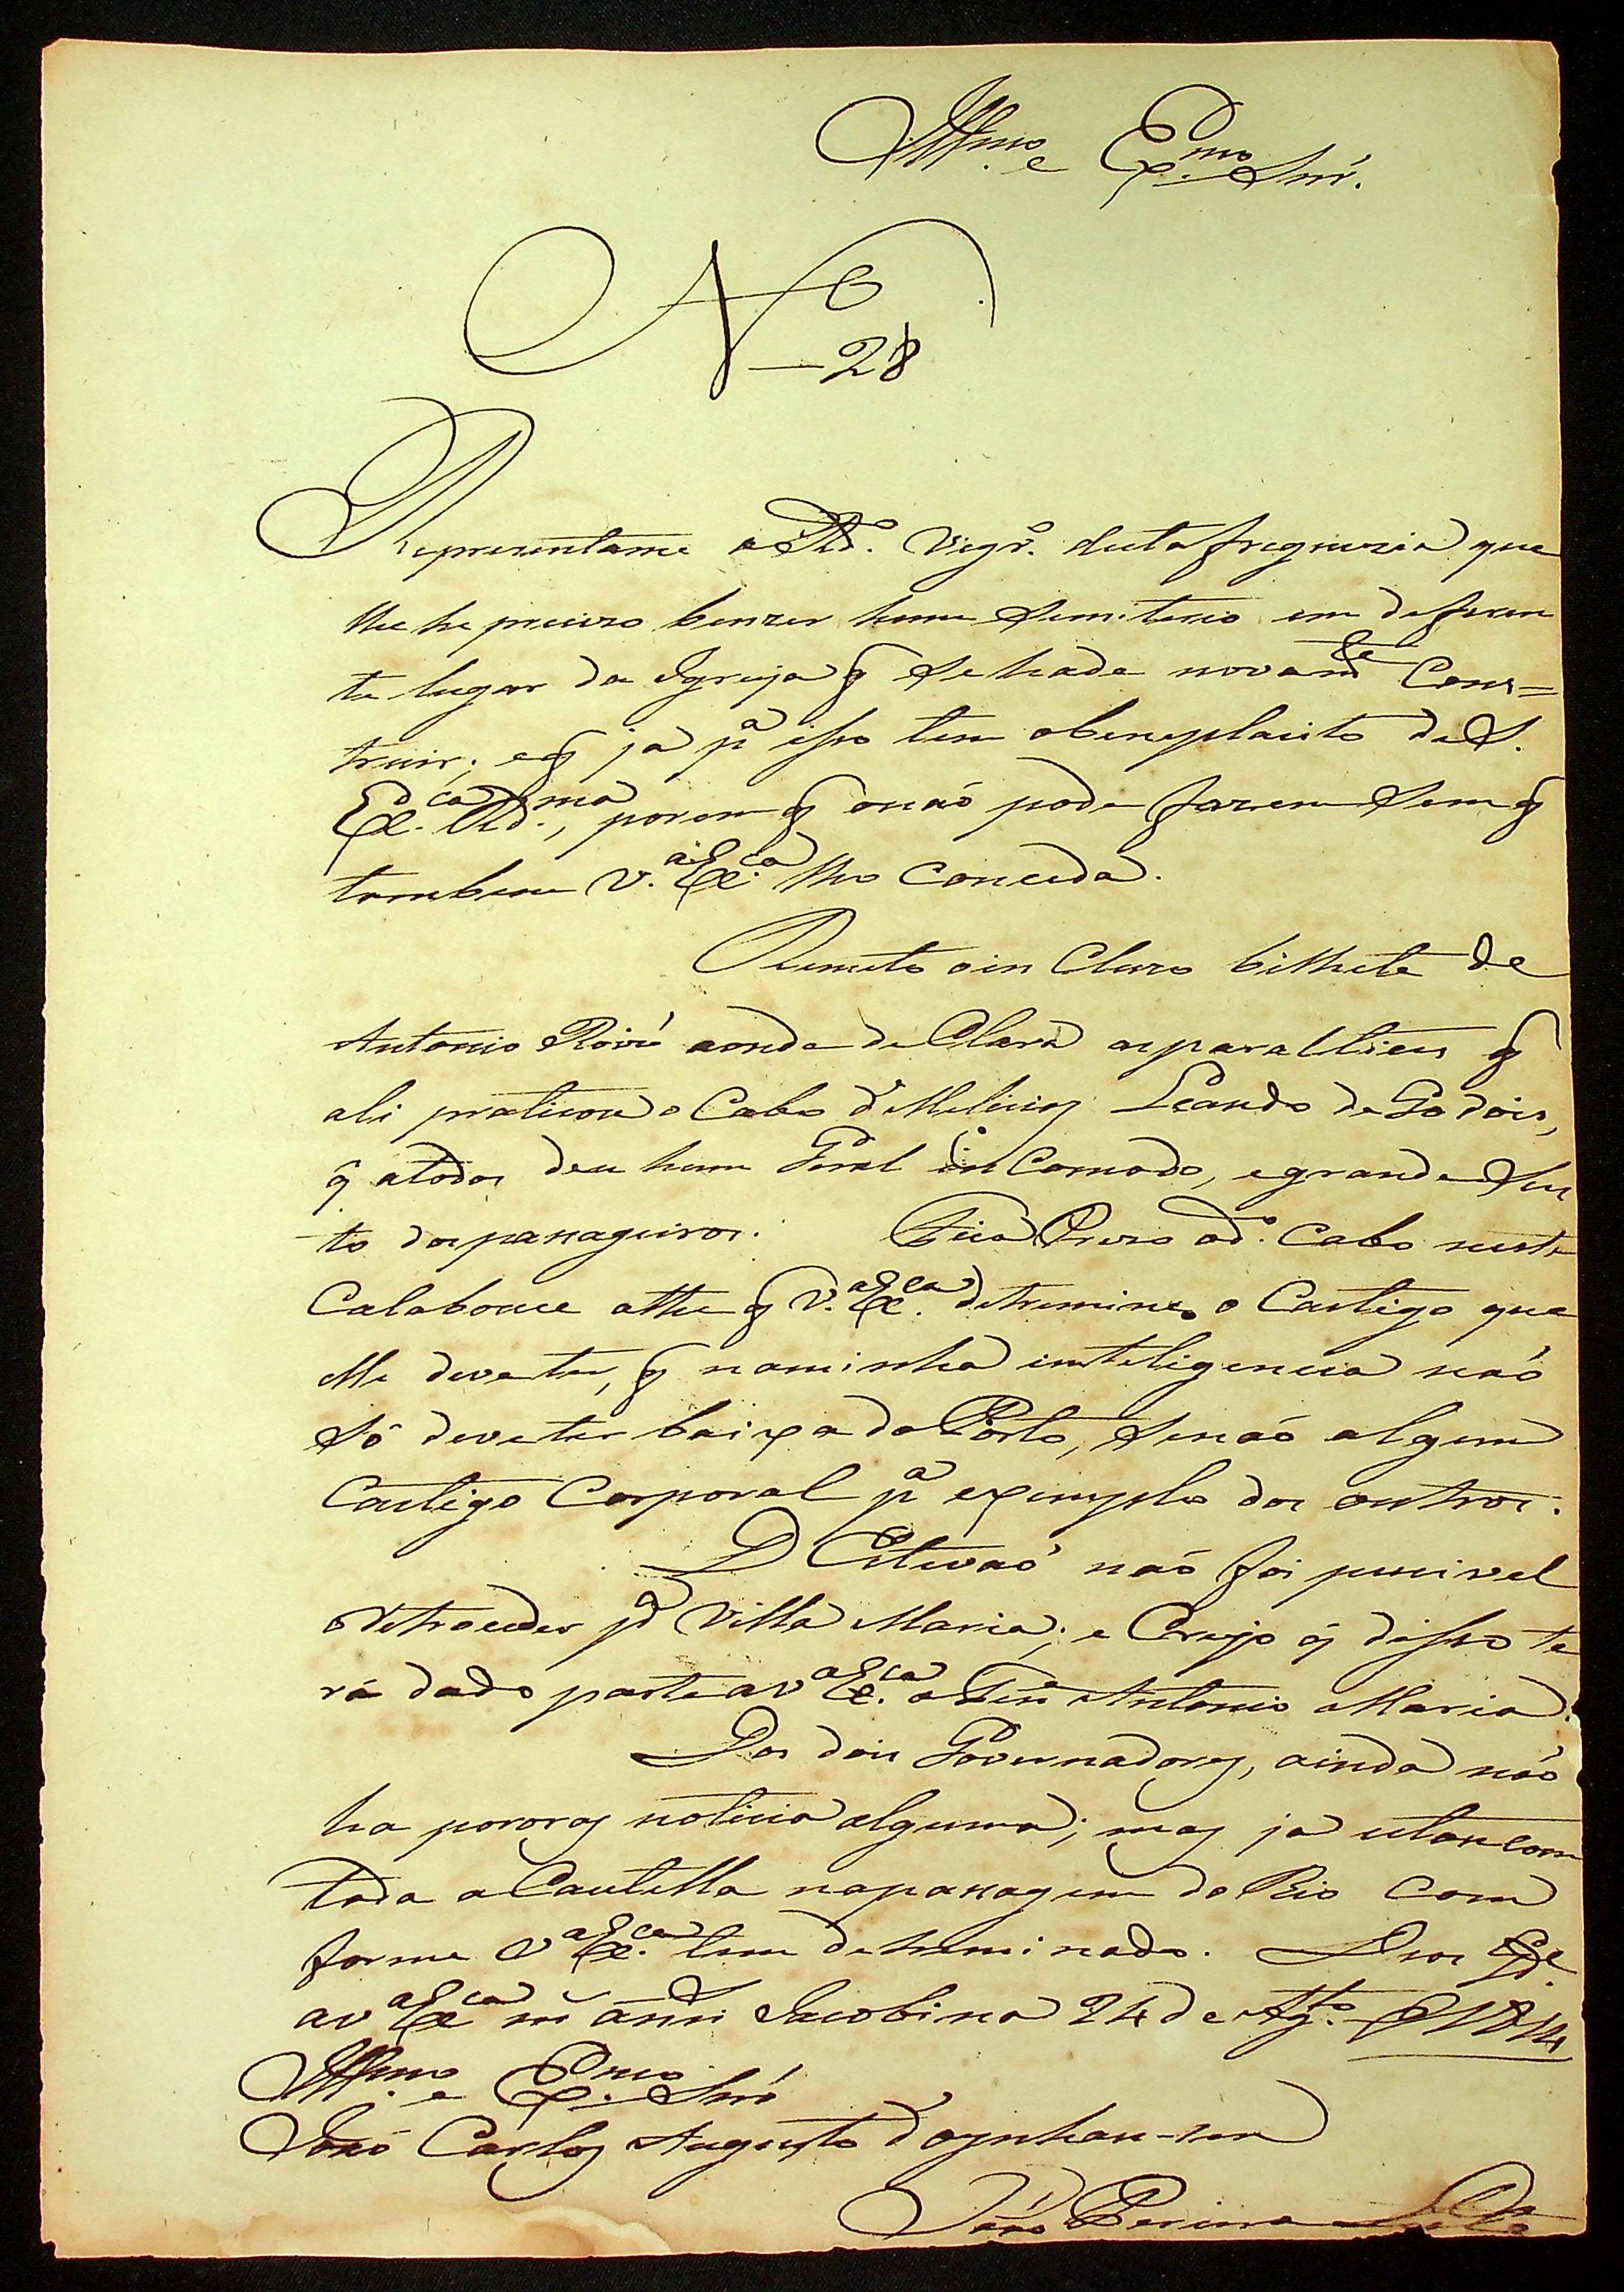 Illmo. e Exmo. Snr̃.
No.
28
Reprezentame o Rdo. Vigro. desta freguezia que
lhe he precizo benzer hum Semiterio em deferen
te lugar da Igreja q̃ se hade novamte Cons=
truir; e q̃ já pa. isso tem obeneplacito de S.
Exca. Rdma., porem q̃ onaõ pode fazer sem q̃
tambem V.a Exca. lho Conceda.
Remeto oin Cluzo bilhete de
Antonio aonde de Clara as paraltices q̃
ali praticou o Cabo d' Melicias Leando de Godois,
q̃ atodos deu hum Geral in Comodo, egrande Sus
to dos passageiros. Fica Prezo od.o Cabo neste
Calabouce athe q̃ V.a Exca. detremine o Castigo que
elle deve ter, q̃ naminha inteligencia naõ
só deve ter baixa do Posto, Senaõ algum
Castigo Corporal pa. exemplo dos outros.
D Estevaõ naõ foi pucivel
retroceder pa. Villa Maria; e Creyo q̃ disso te
rá dado parte a V.a Exca. o Tene. Antonio Maria.
Dos dois Governadores, ainda naõ
ha pororas noticia alguma; mas já estou com
toda a Cautella napassagem do Rio Com
forme V.a Exca. tem detreminado. Deos Gde.
a V.a Exca. ms̃ anns̃ Jacobina 24 de Agto. D 1814
Illmo. e Exmo. Snr̃
Joaõ Carlos Augusto d' Oeynhau-sen
Joaõ Pereira Leite